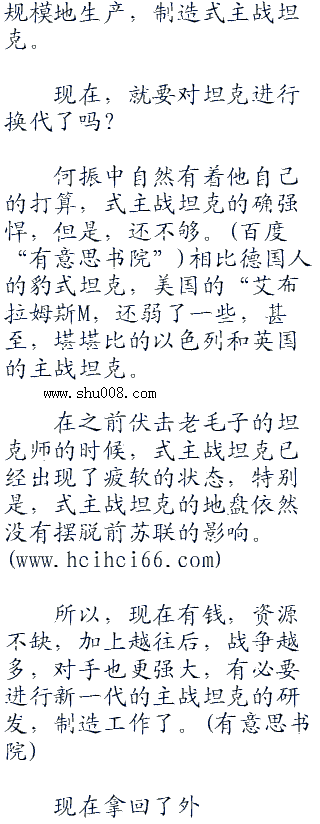 规模地生产，制造式主战坦
克。
现在，就要对坦克进行
换代了吗？
何振中自然有着他自己
的打算，式主战坦克的确强
悍，但是，还不够。(百度
“有意思书院”)相比德国人
的豹式坦克，美国的“艾布
拉姆斯M，还弱了一些，甚
至，堪堪比的以色列和英国
的主战坦克。
www.shu008.com
在之前伏击老毛子的坦
克师的时候，式主战坦克已
经出现了疲软的状态，特别
是，式主战坦克的地盘依然
没有摆脱前苏联的影响。
(www.hcihci66.com)
所以，现在有钱，资源
不缺，加上越往后，战争越
多，对手也更强大，有必要
进行新一代的主战坦克的研
发，制造工作了。(有意思书
院)
现在拿回了外